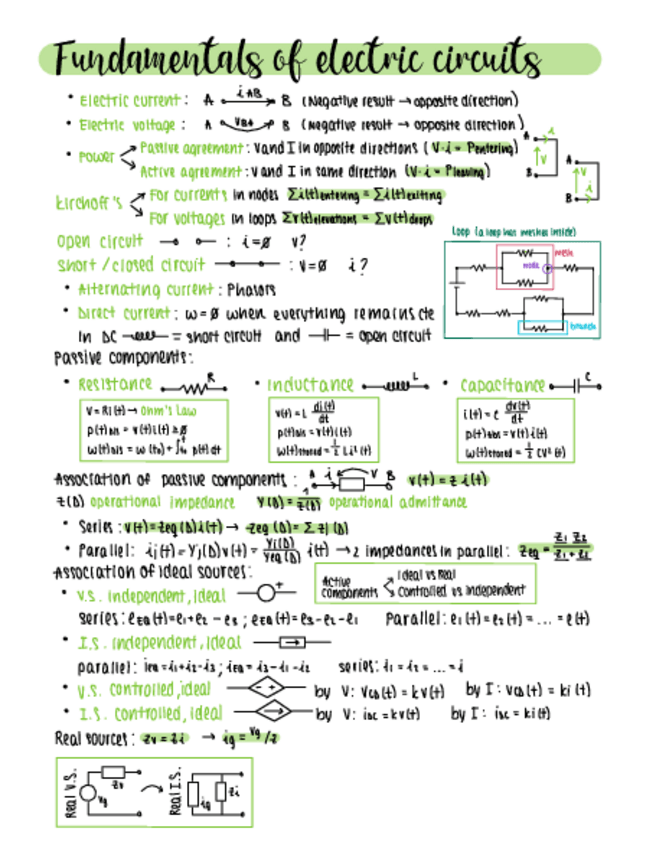 Fundamentals of electric circuits
• Electric current: A i AB B (Negative result → opposite direction)
• Electric voltage: A VBA B (Negative result → opposite direction)
• Power Passive agreement: V and I in opposite directions (V·i = Pentering)
Active agreement: V and I in same direction (V·i = Pleaving)
A i V B
A V i B
Kirchoff's For currents in nodes Σi(t)entering = Σi(t)exiting
For voltages in loops Σv(t)elevations = Σv(t)drops
Open circuit : i=ø v?
Short/closed circuit : v=ø i?
Loop (a loop has meshes inside)
mesh
node
branch
• Alternating current: Phasors
• Direct current: ω=ø when everything remains cte
In DC = short circuit and = open circuit
Passive components:
• Resistance R
V=Ri(t) → Ohm's Law
p(t)dis = v(t)i(t) ≥ø
w(t)dis = w(t₀) + ∫ p(t)dt
• Inductance L
v(t)=L di(t)/dt
p(t)abs = v(t)i(t)
w(t)stored = 1/2 Li²(t)
• Capacitance C
i(t)=C dv(t)/dt
p(t)abs = v(t)i(t)
w(t)stored = 1/2 CV²(t)
Association of passive components: A i V B v(t)=z i(t)
Z(D) operational impedance Y(D)=1/Z(D) operational admittance
• Series: v(t)=Zeq(D)i(t) → Zeq(D)=Σzj(D)
• Parallel: ij(t)=Yj(D)v(t)= Yj(D)/Yeq(D) i(t) → 2 impedances in parallel: Zeq= Z1 Z2/Z1+Z2
Association of ideal sources:
Active components Ideal vs Real
Controlled vs Independent
• V.S. Independent, Ideal +
series: eEQ(t)=e1+e2-e3; eEQ(t)=e3-e2-e1 Parallel: e1(t)=e2(t)=...=e(t)
• I.S. Independent, Ideal
parallel: iEQ=i1+i2-i3; iEQ=i3-i1-i2 series: i1=i2=...=i
• V.S. controlled, ideal - + by V: VCD(t)=kv(t) by I: VCD(t)=ki(t)
• I.S. Controlled, Ideal by V: iSC=kv(t) by I: iSC=ki(t)
Real sources: Zv=Zi → ig=Vg/Z
Real V.S. Vg Zv Real I.S. ig Zi